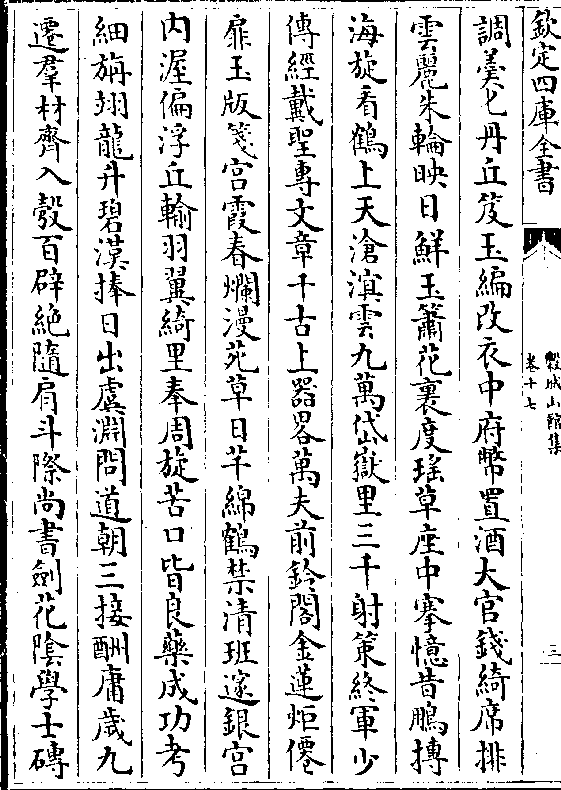 欽定四庫全書
穀城山館集
卷十七
三
調羮七丹丘笈玉編改衣中府幣置酒大官錢綺席排
雲麗朱輪映日鮮玉簫花裏度瑶草座中搴憶昔鵬摶
海旋看鶴上天滄溟雲九萬岱嶽里三千射策終軍少
傳經戴聖專文章千古上器畧萬夫前鈴閣金蓮炬僊
扉玉版箋宮霞春爛漫苑草日芊綿鶴禁清班邃銀宮
内渥偏浮丘輸羽翼綺里奉周旋苦口皆良藥成功考
細旃翊龍升碧漢捧日出虞淵問道朝三接酬庸歳九
遷羣材齊入彀百辟絶隨肩斗際尚書劍花隂學士磚